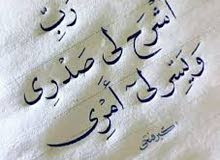 رَبِّ
اشْرَحْ لِى صَدْرِى
وَيَسِّرْ لِىٓ أَمْرِى